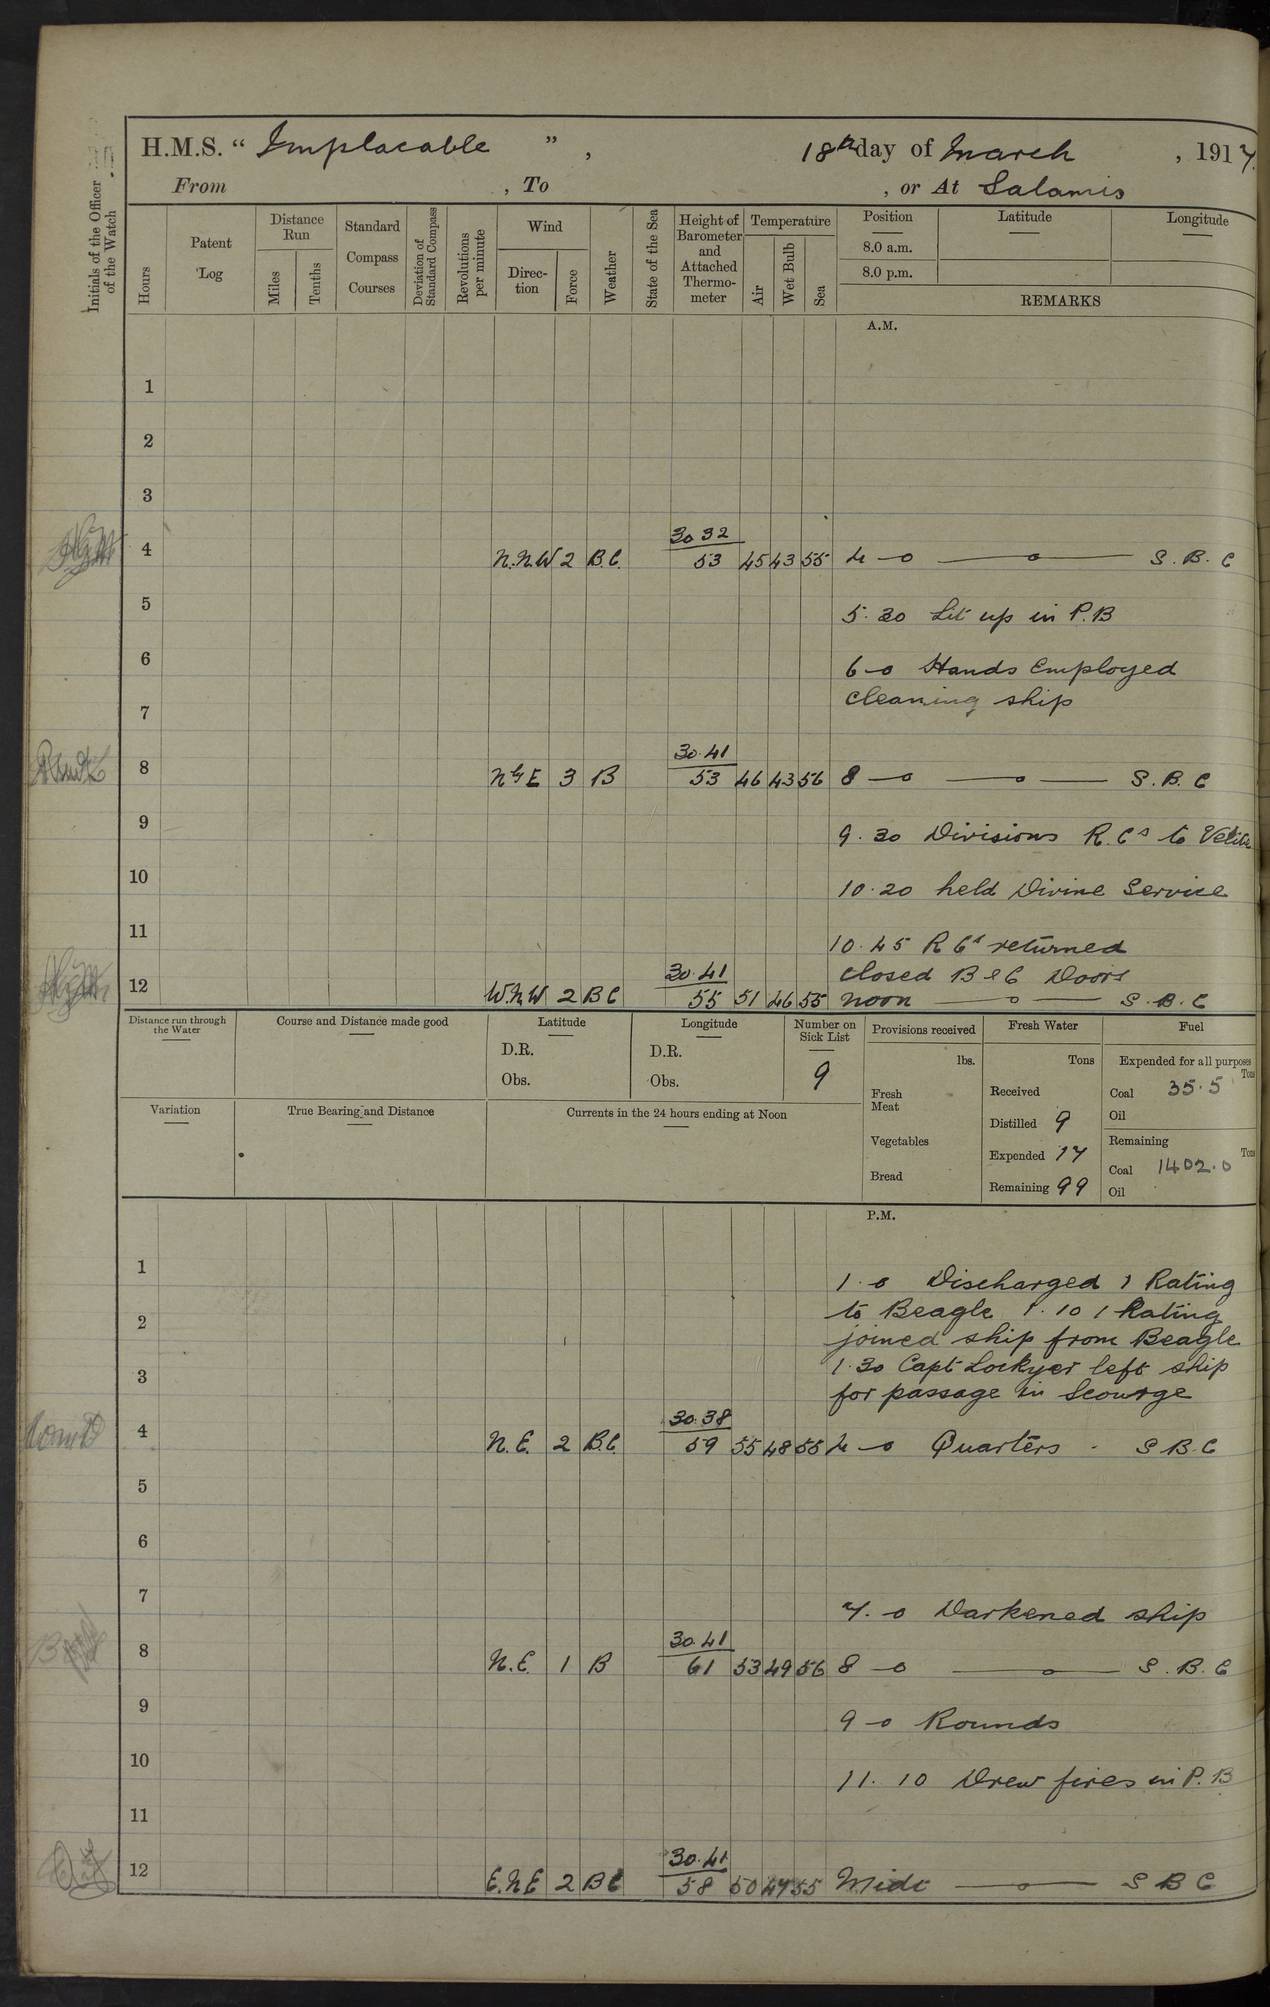 H.M.S. " Implacable " , 18th day of March , 1917.
From , To , or At Salamis
Initials of the Officer of the Watch
Hours
Patent Log
Distance Run
Miles
Tenths
Standard Compass Courses
Deviation of Standard Compass
Revolutions per minute
Wind
Direc-tion
Force
Weather
State of the Sea
Height of Barometer and Attached Thermo-meter
Temperature
Air
Wet Bulb
Sea
Position Latitude Longitude
8.0 a.m.
8.0 p.m.
REMARKS
A.M.
1
2
3
30 32
4 N.N.W 2 B.C. 53 45 43 55 4 - o — o — S. B. C
5 5. 30 Lit up in P.B
6 6 - o Hands Employed
cleaning ship
7
30.41
8 N by E 3 B 53 46 43 56 8 - o — o — S. B. C
9 9. 30 Divisions R. Cs to
10 10.20 held Divine Service
11 10.45 R Cs returned
30.41 closed B & C Doors
12 W.N.W 2 B C 55 51 46 55 noon — o — S. B. C
Distance run through the Water
Course and Distance made good
Latitude
D.R.
Obs.
Longitude
D.R.
Obs.
Number on Sick List
9
Provisions received
lbs.
Fresh Meat
Vegetables
Bread
Fresh Water
Tons
Received
Distilled 9
Expended 17
Remaining 99
Fuel
Expended for all purposes
Tons
Coal 35.5
Oil
Remaining
Tons
Coal 1402.0
Oil
Variation
True Bearing and Distance
Currents in the 24 hours ending at Noon
P.M.
1 1. o Discharged 1 Rating
2 to Beagle 1. 10 1 Rating
joined ship from Beagle
3 1.30 Capt Lockyer left ship
for passage in Scourge
30.38
4 N. E. 2 B.C 59 55 48 55 4 - o Quarters - S B.C
5
6
7 7. o Darkened ship
30.41
8 N. E. 1 B 61 53 49 56 8 - o — o — S. B. C
9 9 - o Rounds
10 11. 10 Drew fires in P. B
11
30.41
12 E.N.E 2 B C 58 50 47 55 Midt — o — S B C